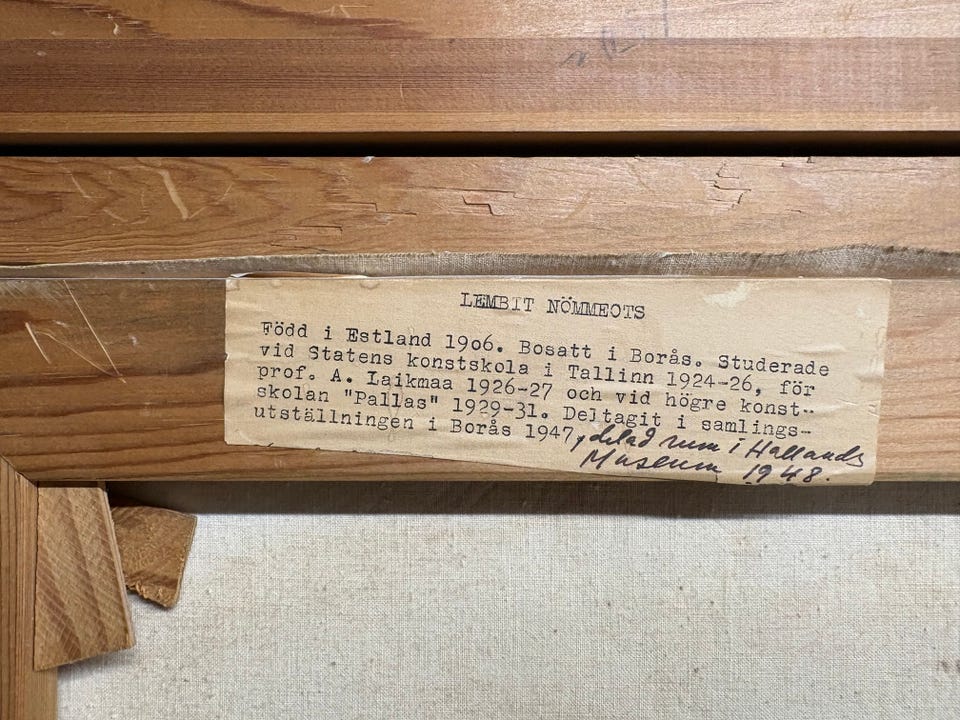 LEMBIT NÖMMEOTS
Född i Estland 1906. Bosatt i Borås. Studerade
vid Statens konstskola i Tallinn 1924-26, för
prof. A. Laikmaa 1926-27 och vid högre konst-
skolan "Pallas" 1929-31. Deltagit i samlings-
utställningen i Borås 1947, i Hallands
Museum 1948.